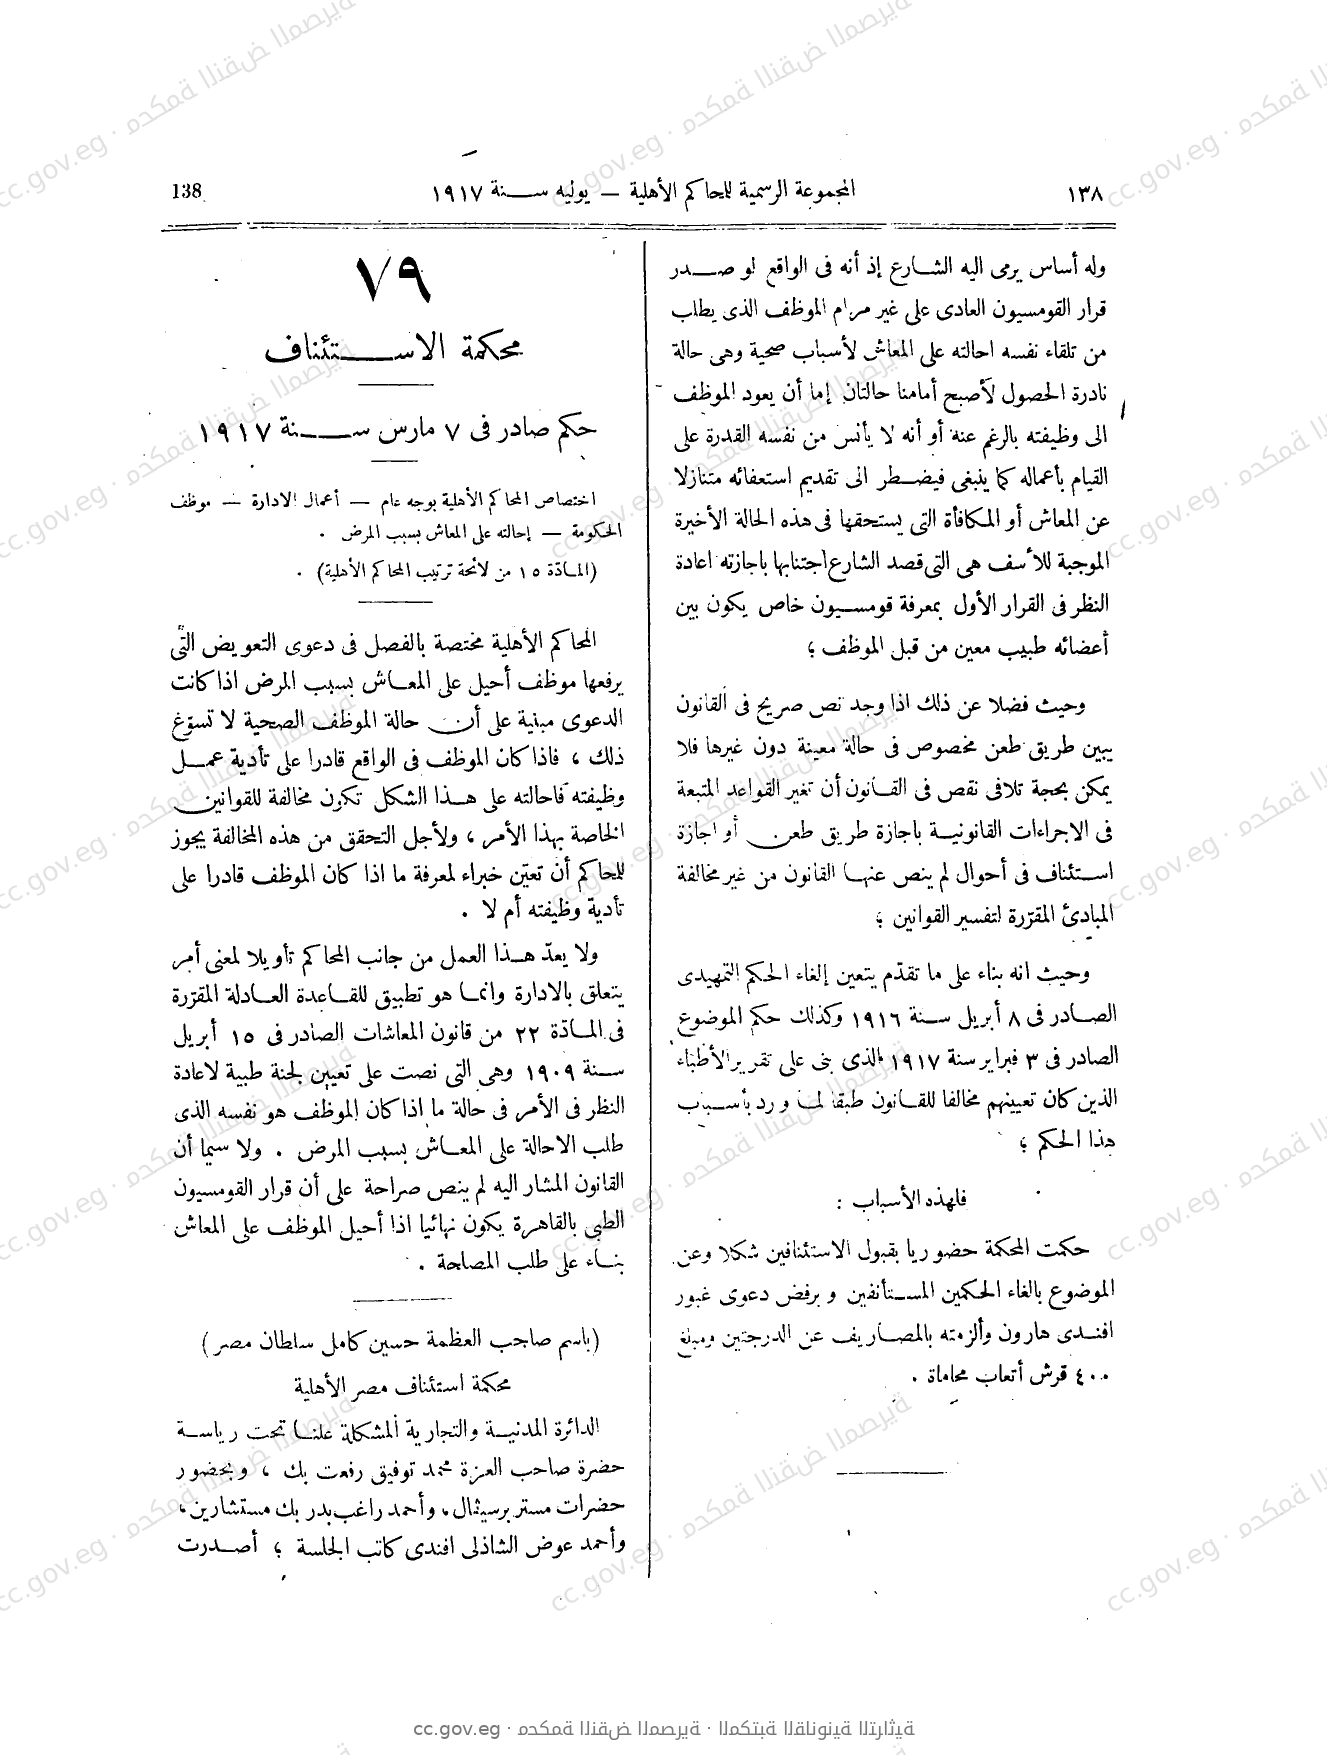 ١٣٨
المجموعة الرسمية للمحاكم الأهلية — يوليه سنة ١٩١٧
138
وله أساس يرمى اليه الشارع إذ أنه فى الواقع لو صدر
قرار القومسيون العادى على غير مرام الموظف الذى يطلب
من تلقاء نفسه احالته على المعاش لأسباب صحية وهى حالة
نادرة الحصول لأصبح أمامنا حالتان إما أن يعود الموظف
الى وظيفته بالرغم عنه أو أنه لا يأنس من نفسه القدرة على
القيام بأعماله كما ينبغى فيضطر الى تقديم استعفائه متنازلا
عن المعاش أو المكافأة التى يستحقها فى هذه الحالة الأخيرة
الموجبة للأسف هى التى قصد الشارع اجتنابها باجازته اعادة
النظر فى القرار الأول بمعرفة قومسيون خاص يكون بين
أعضائه طبيب معين من قبل الموظف ؛
وحيث فضلا عن ذلك اذا وجد نص صريح فى القانون
يبين طريق طعن مخصوص فى حالة معينة دون غيرها فلا
يمكن بحجة تلافى نقص فى القانون أن تغير القواعد المتبعة
فى الاجراءات القانونية باجازة طريق طعن أو اجازة
استئناف فى أحوال لم ينص عنها القانون من غير مخالفة
المبادئ المقررة لتفسير القوانين ؛
وحيث انه بناء على ما تقدّم يتعين إلغاء الحكم التمهيدى
الصادر فى ٨ أبريل سنة ١٩١٦ وكذلك حكم الموضوع
الصادر فى ٣ فبراير سنة ١٩١٧ الذى بنى على تقرير الأطباء
الذين كان تعيينهم مخالفا للقانون طبقا لما ورد بأسباب
هذا الحكم ؛
فلهذه الأسباب :
حكمت المحكمة حضوريا بقبول الاستئنافين شكلا وعن
الموضوع بالغاء الحكمين المستأنفين وبرفض دعوى غبور
افندى هارون وألزمته بالمصاريف عن الدرجتين ومبلغ
٤٠٠ قرش أتعاب محاماة .
٧٩
محكمة الاستئناف
حكم صادر فى ٧ مارس سنة ١٩١٧
اختصاص المحاكم الأهلية بوجه عام — أعمال الادارة — موظف
الحكومة — إحالته على المعاش بسبب المرض .
(المادّة ١٥ من لائحة ترتيب المحاكم الأهلية) .
المحاكم الأهلية مختصة بالفصل فى دعوى التعويض التى
يرفعها موظف أحيل على المعاش بسبب المرض اذا كانت
الدعوى مبنية على أن حالة الموظف الصحية لا تسوّغ
ذلك ، فاذا كان الموظف فى الواقع قادرا على تأدية عمل
وظيفته فاحالته على هذا الشكل تكون مخالفة للقوانين
الخاصة بهذا الأمر ، ولأجل التحقق من هذه المخالفة يجوز
للمحاكم أن تعيّن خبراء لمعرفة ما اذا كان الموظف قادرا على
تأدية وظيفته أم لا .
ولا يعدّ هذا العمل من جانب المحاكم تأويلا لمعنى أمر
يتعلق بالادارة وانما هو تطبيق للقاعدة العادلة المقررة
فى المادّة ٢٢ من قانون المعاشات الصادر فى ١٥ أبريل
سنة ١٩٠٩ وهى التى نصت على تعيين لجنة طبية لاعادة
النظر فى الأمر فى حالة ما اذا كان الموظف هو نفسه الذى
طلب الاحالة على المعاش بسبب المرض . ولا سيما أن
القانون المشار اليه لم ينص صراحة على أن قرار القومسيون
الطبى بالقاهرة يكون نهائيا اذا أحيل الموظف على المعاش
بناء على طلب المصلحة .
(باسم صاحب العظمة حسين كامل سلطان مصر)
محكمة استئناف مصر الأهلية
الدائرة المدنية والتجارية المشكلة علنا تحت رياسة
حضرة صاحب العزة محمد توفيق رفعت بك ، وبحضور
حضرات مستر برسيڤال، وأحمد راغب بدر بك مستشارين،
وأحمد عوض الشاذلى افندى كاتب الجلسة ؛ أصدرت
cc.gov.eg · محكمة النقض المصرية · المكتبة القانونية التراثية